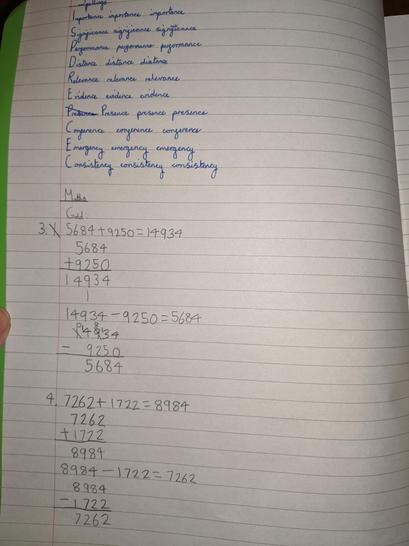 Spellings
Importance importance importance
Significance significance significance
Performance performance performance
Distance distance distance
Relevance relevance relevance
Evidence evidence evidence
Presence presence presence
Conference conference conference
Emergency emergency emergency
Consistency consistency consistency
Maths
Gold:
3. 5684+9250=14934
5684
+9250
14934
1
14934-9250=5684
14934
- 9250
5684
4. 7262+1722=8984
7262
+1722
8984
8984-1722=7262
8984
-1722
7262